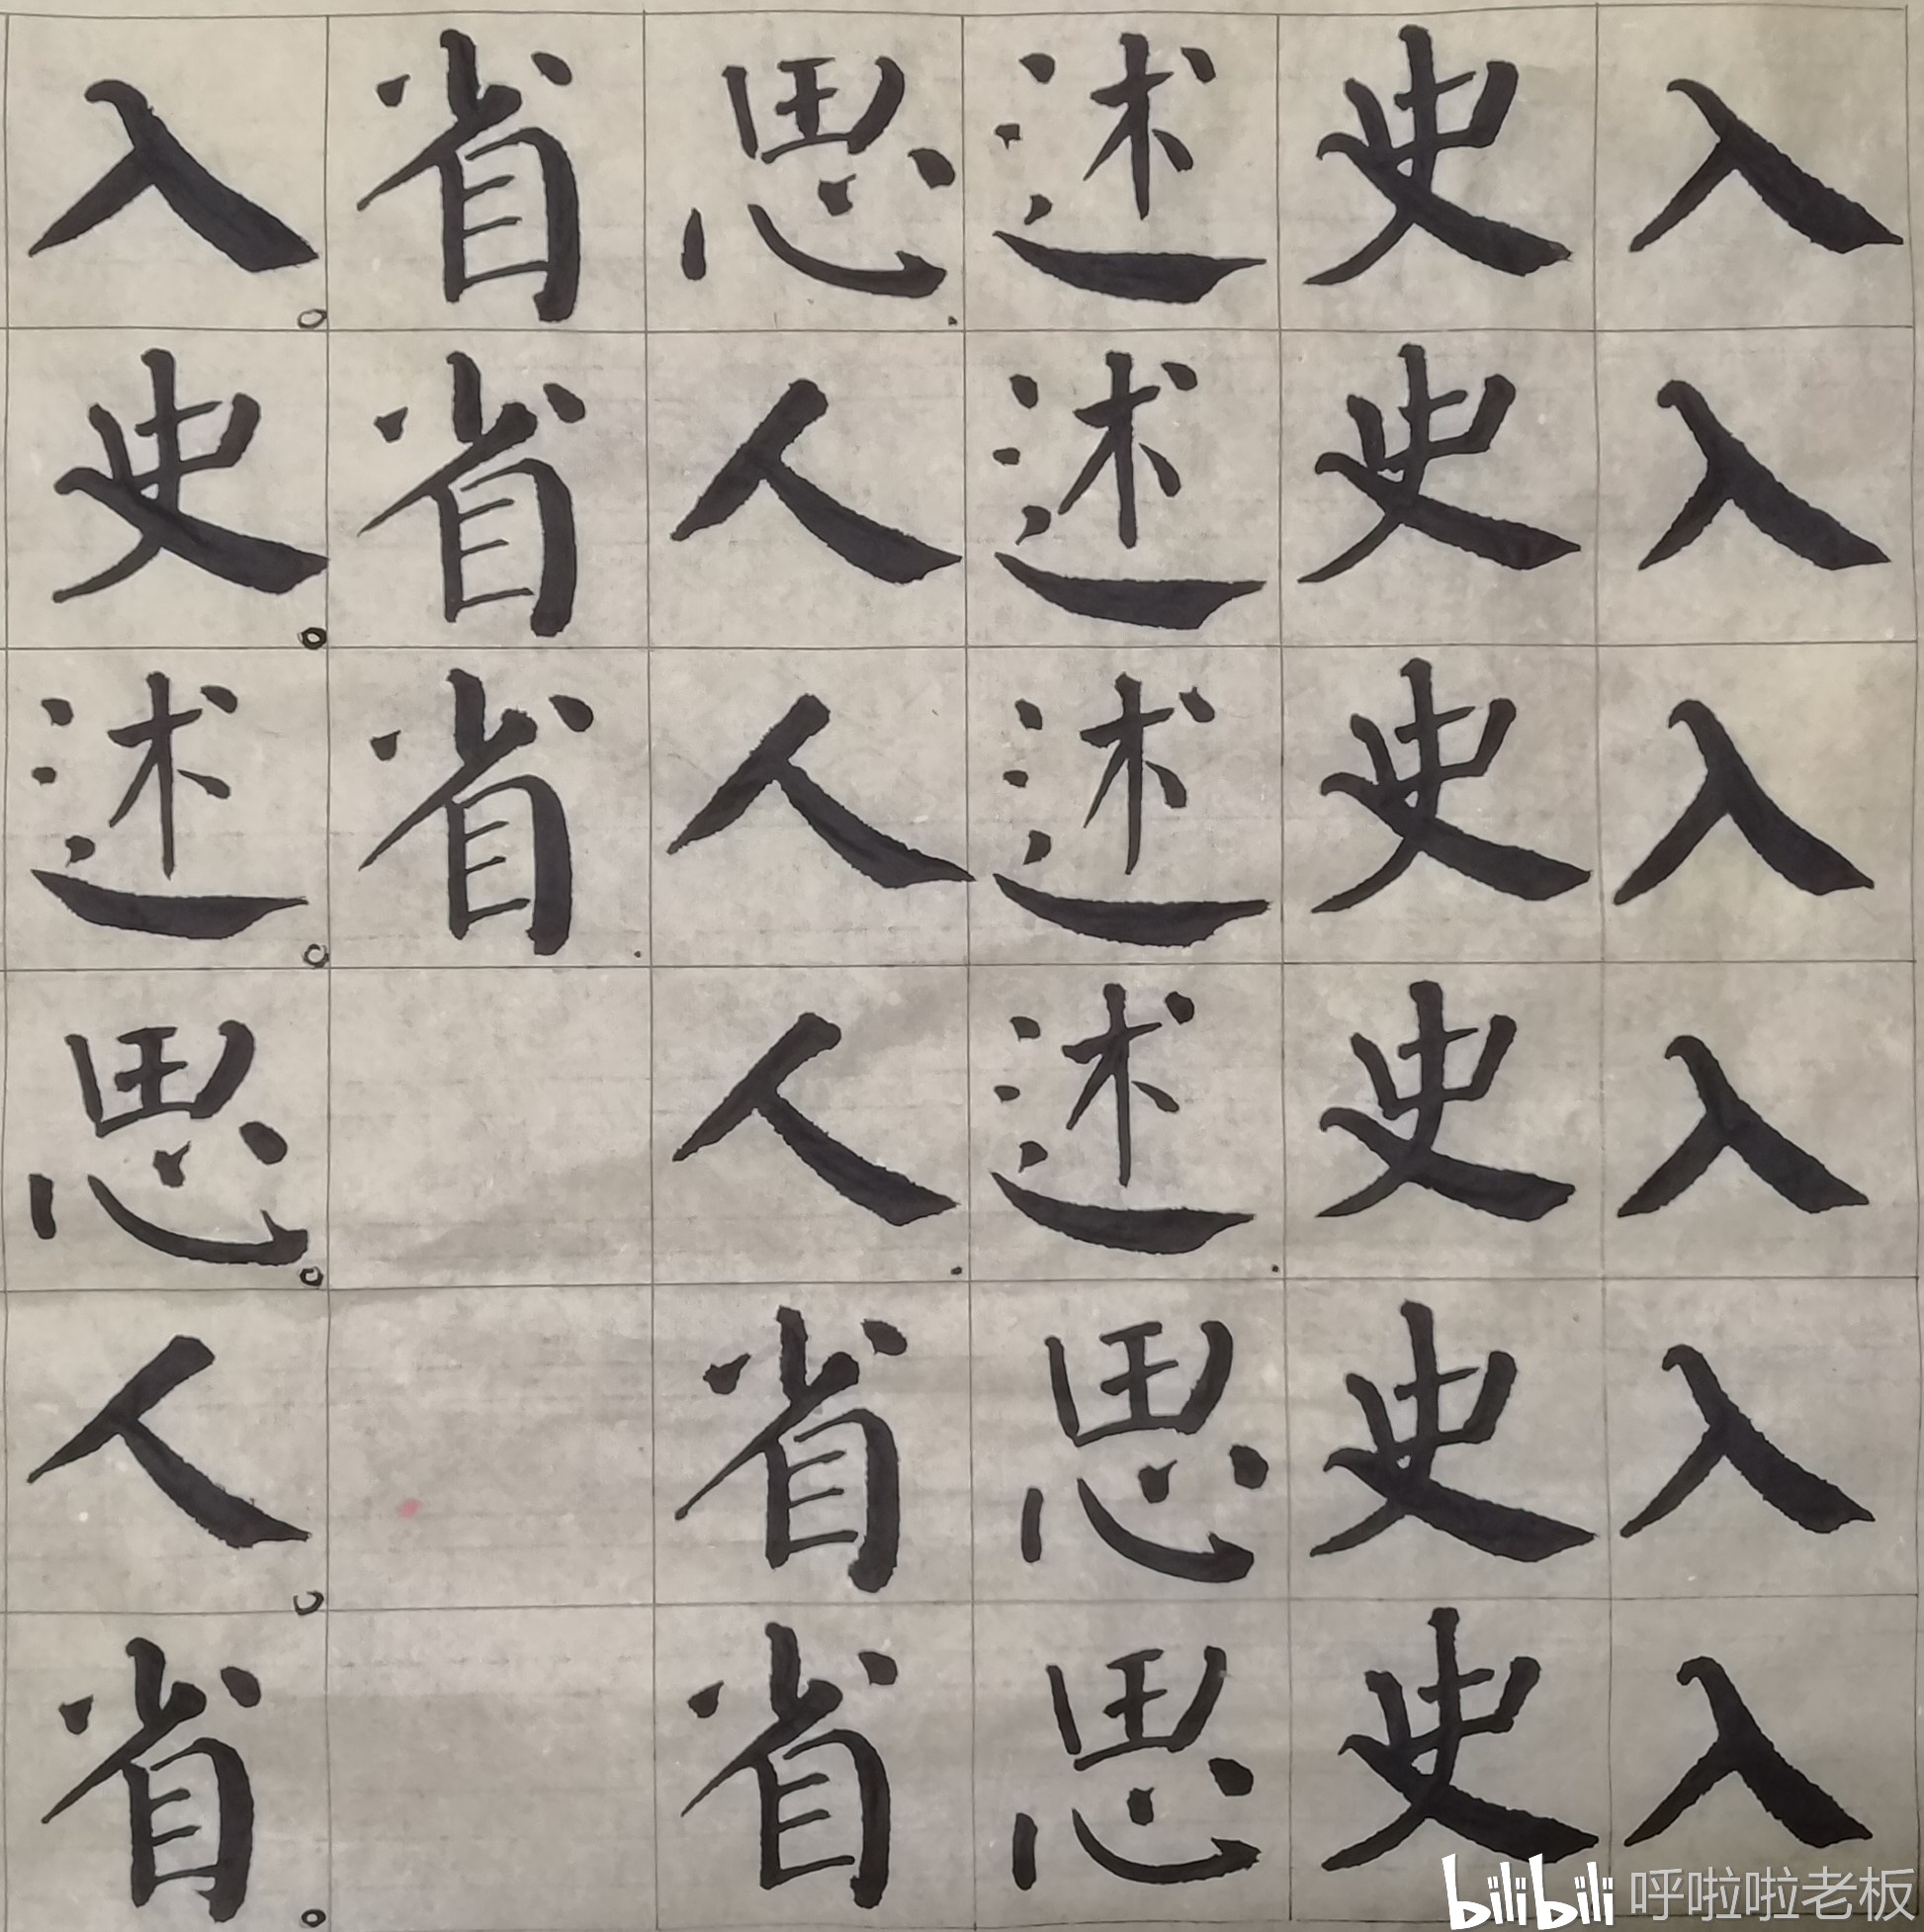 入入入入入入
史史史史史史
述述述述.思思
思.人人人.省省
省省省.
入。史。述。思。人。省。
bilibili 呼啦啦老板